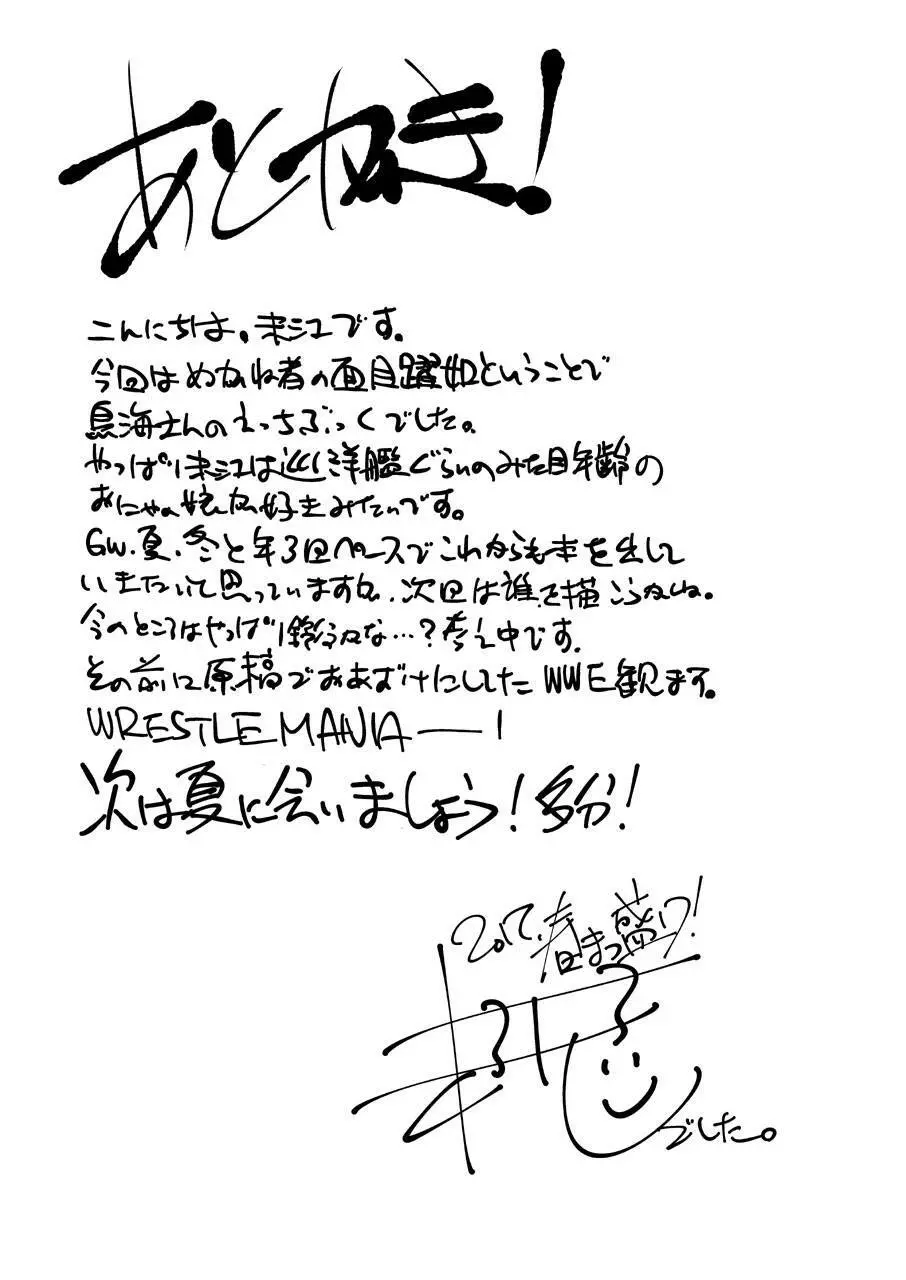 あとがき!
こんにちは。末江です。
今回はめがね者の面目躍如ということで
鳥海さんのえっちぶっくでした。
やっぱり末江は巡洋艦ぐらいのみため年齢の
おにゃの娘が好きみたいです。
GW、夏、冬と年3回ペースでこれからも本を出して
いきたいって思っていますが、次回は誰を描こうかしね。
今のところはやっぱり鈴谷かな…?考え中です。
その前に原稿でおあずけにしてたWWE観ます。
WRESTLE MANIA――!
次は夏に会いましょう!多分!
2017.春まっ盛り!
でした。